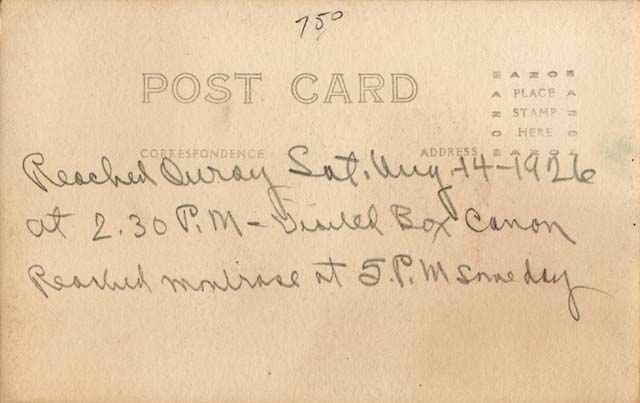 750
POST CARD
AZOE
A PLACE A
Z STAMP Z
O HERE O
CORRESPONDENCE ADDRESS EAZOE
Reached Ouray Sat. Aug. 14-1926
at 2.30 P.M - Visited Box Canon
Reached montrose at 5.P.M same day